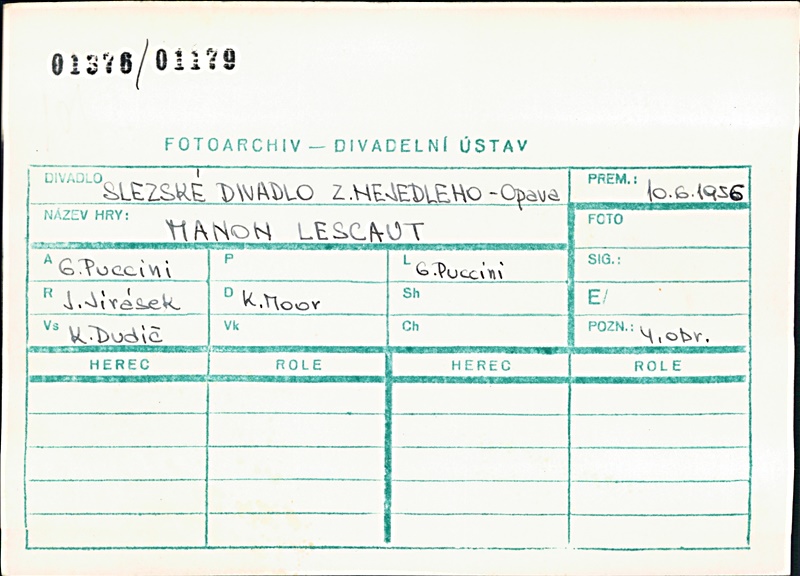 01376/01179
FOTOARCHIV — DIVADELNÍ ÚSTAV
DIVADLO SLEZSKÉ DIVADLO Z.NEJEDLEHO - Opava PREM.: 10.6.1956
NÁZEV HRY: MANON LESCAUT FOTO
A G.Puccini P L G.Puccini SIG.:
R J.Jirásek D K.Moor Sh E/
Vs K.Dudič Vk Ch POZN.: 4.obr.
HEREC ROLE HEREC ROLE